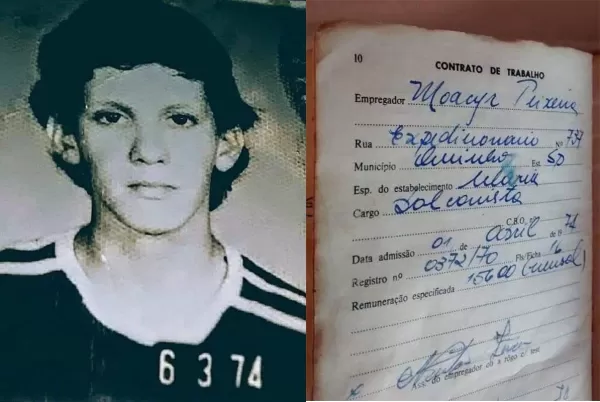 6 3 74
10
CONTRATO DE TRABALHO
Empregador Moacyr Peixeiro
Rua Expedicionario Nº 737
Município Est. SP
Esp. do estabelecimento
Cargo Balconista
C.B.O. nº
Data admissão 01 de abril de 1974
Registro nº 0372/70 Fls/Ficha 16
Remuneração especificada 15600 (mensal)
Ass. do empregador ou a rôgo c/ test.